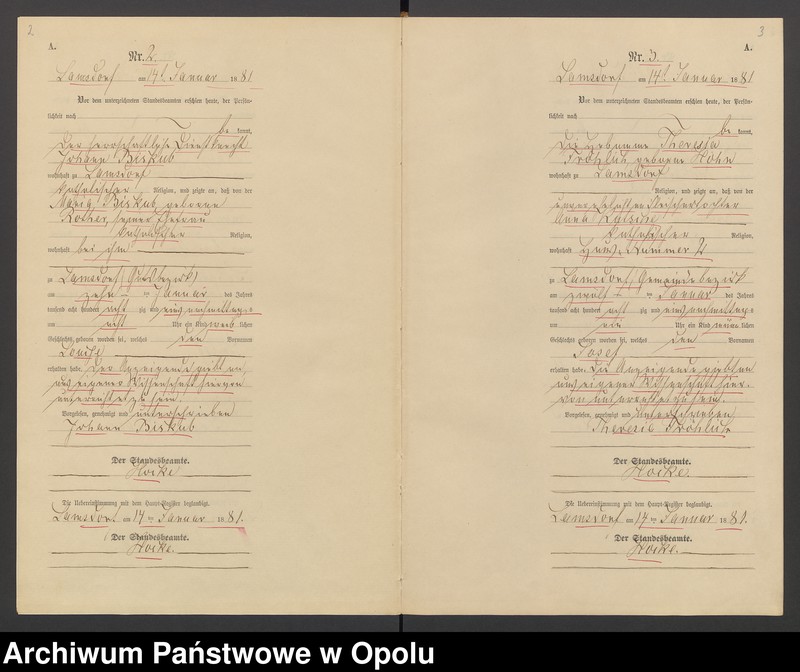 2
A.
Nr. 2.
Lamsdorf am 14t Januar 1881
Vor dem unterzeichneten Standesbeamten erschien heute, der Persön-
lichkeit nach
be kannt,
der herrschaftliche Dienstknecht
Johann Biskub
wohnhaft zu Lamsdorf
katholischer Religion, und zeigte an, daß von der
Maria Biskub geborene
Rother, seiner Ehefrau
katholischer Religion,
wohnhaft bei ihm
zu Lamsdorf (Gutsbezirk)
am zehn ten Januar des Jahres
tausend acht hundert acht zig und eins nachmittags
um acht Uhr ein Kind weib lichen
Geschlechts geboren worden sei, welches den Vornamen
Louise
erhalten habe. Der Anzeigende giebt an,
aus eigener Wissenschaft hiervon
unterrichtet zu sein.
Vorgelesen, genehmigt und unterschrieben
Johann Biskub
Der Standesbeamte.
Hocke
Die Uebereinstimmung mit dem Haupt-Register beglaubigt.
Lamsdorf am 14 ten Januar 1881.
Der Standesbeamte.
Hocke.
3
A.
Nr. 3.
Lamsdorf am 14t Januar 1881
Vor dem unterzeichneten Standesbeamten erschien heute, der Persön-
lichkeit nach
be kannt,
die Hebamme Theresia
Fröhlich, geborene Hohn
wohnhaft zu Lamsdorf
Religion, und zeigte an, daß von der
unverehelichten Fleischertochter
Anna
katholischer Religion,
wohnhaft Haus Nummer 4
zu Lamsdorf, Gemeindebezirk
am zwölf ten Januar des Jahres
tausend acht hundert acht zig und eins nachmittags
um ein Uhr ein Kind männ lichen
Geschlechts geboren worden sei, welches den Vornamen
Josef
erhalten habe. Die Anzeigende giebt an
aus eigener Wissenschaft hier-
von unterrichtet zu sein.
Vorgelesen, genehmigt und unterschrieben
Theresia Fröhlich
Der Standesbeamte.
Hocke.
Die Uebereinstimmung mit dem Haupt-Register beglaubigt.
Lamsdorf am 14 ten Januar 1881.
Der Standesbeamte.
Hocke.
Archiwum Państwowe w Opolu